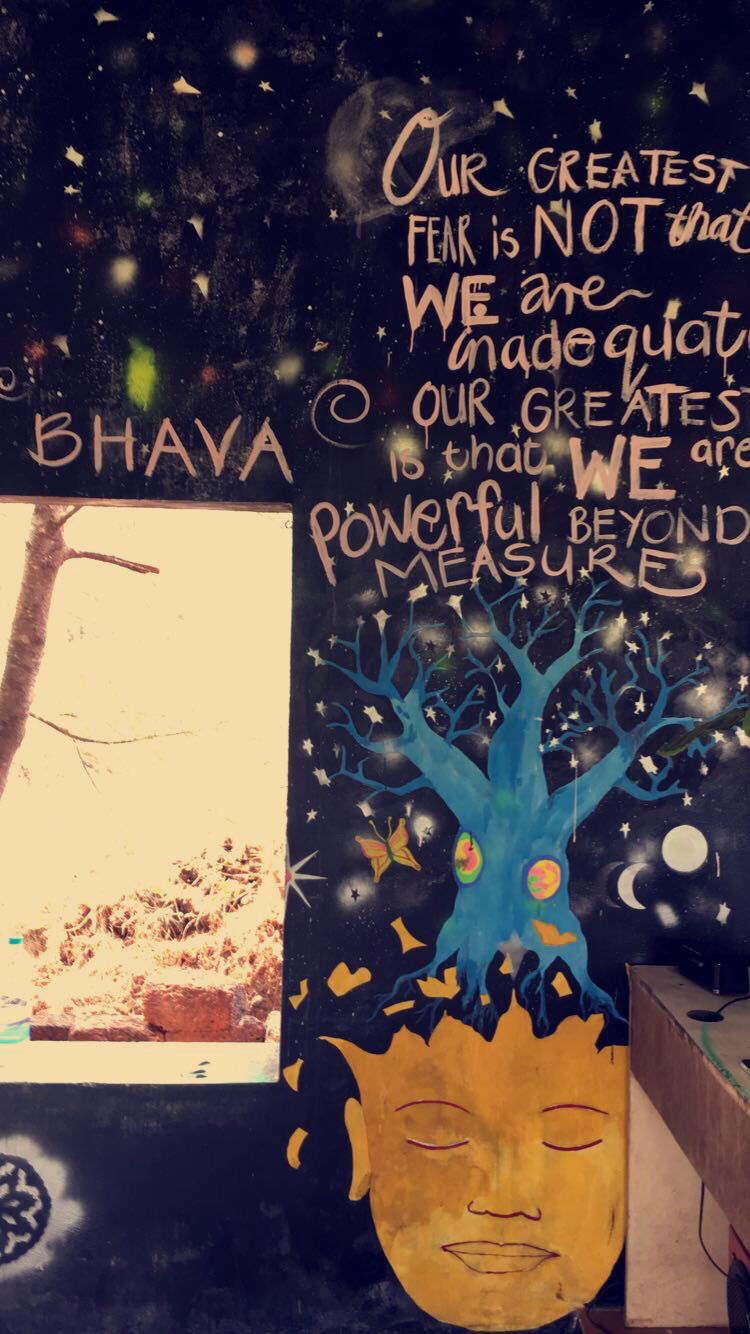 BHAVA
OUR GREATEST
FEAR is NOT that
WE are
inadequat
OUR GREATEST
is that WE are
Powerful BEYOND
MEASURE